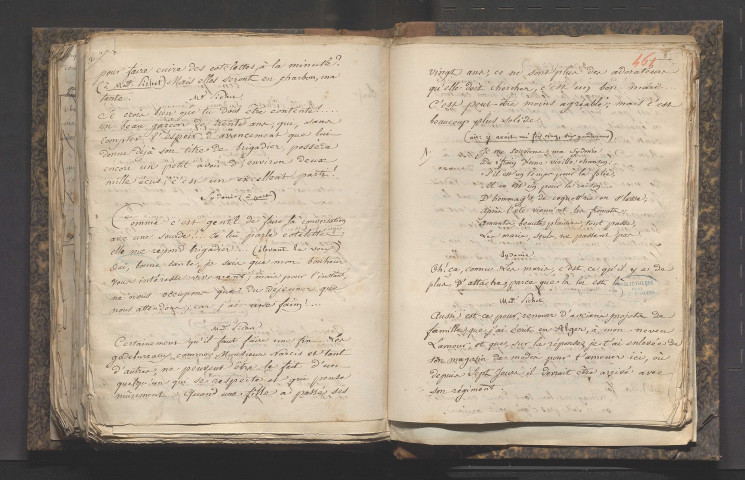 pour faire cuire des cotelettes, à la minute?
(à Mme Pichu) Mais elles seront en charbon, ma
tante.
Mme Pichu
Je crois bien que tu dois être contente!...
un beau garçon de trente ans, qui, sans
compter l'espoir d'avancement que lui
donne déjà son titre de brigadier, possède
encore un petit avoir d'environ deux
mille écus; c'est un excellent parti!
Sydonie (à part)
Comme c'est gentil de faire la conversation
avec une sourde... Je lui parle cotelette
elle me répond brigadier. (élevant la voix)
Oui, bonne tante, je sais que mon bonheur
vous intéresse vivement; mais pour l'instant,
ne nous occupons que du déjeuner, que
nous attendons, car j'ai une faim!...
Mme Pichu
Certainement qu'il faut faire une fin. Les
godelureaux, comme Monsieur Narcis et tant
d'autres, ne peuvent être le fait d'une
quelqu'un qui se respecte et qui pense
mûrement. Quand une fille a passé ses
461
vingt ans, ce ne sont plus des adorateurs
qu'elle doit chercher, c'est un bon mari.
C'est peut-être moins agréable; mais c'est
beaucoup plus solide.
Je me souviens, ma Sydonie
De trois d'une vieille chanson:
S'il est un temps pour la folie,
Il en est un pour la raison.
D'hommages la coquette on se lasse,
Après l'été viennent les frimats;
Amants, beauté, plaisir, tout passe,
Les maris, seuls, ne passent pas.
Sydonie
Oh! ça, connu. Les maris, c'est ce qu'il y a de
plus d'attaché, parce que la loi est là.
Mme Pichu
Aussi est-ce pour renouer d'anciens projets de
famille que j'ai écrit en Alger, à mon neveu
Lamour, et que, sur la réponse, je t'ai enlevée de
ton magasin de modes pour t'amener ici, où
depuis sept jours il devrait être arrivé avec
son régiment.